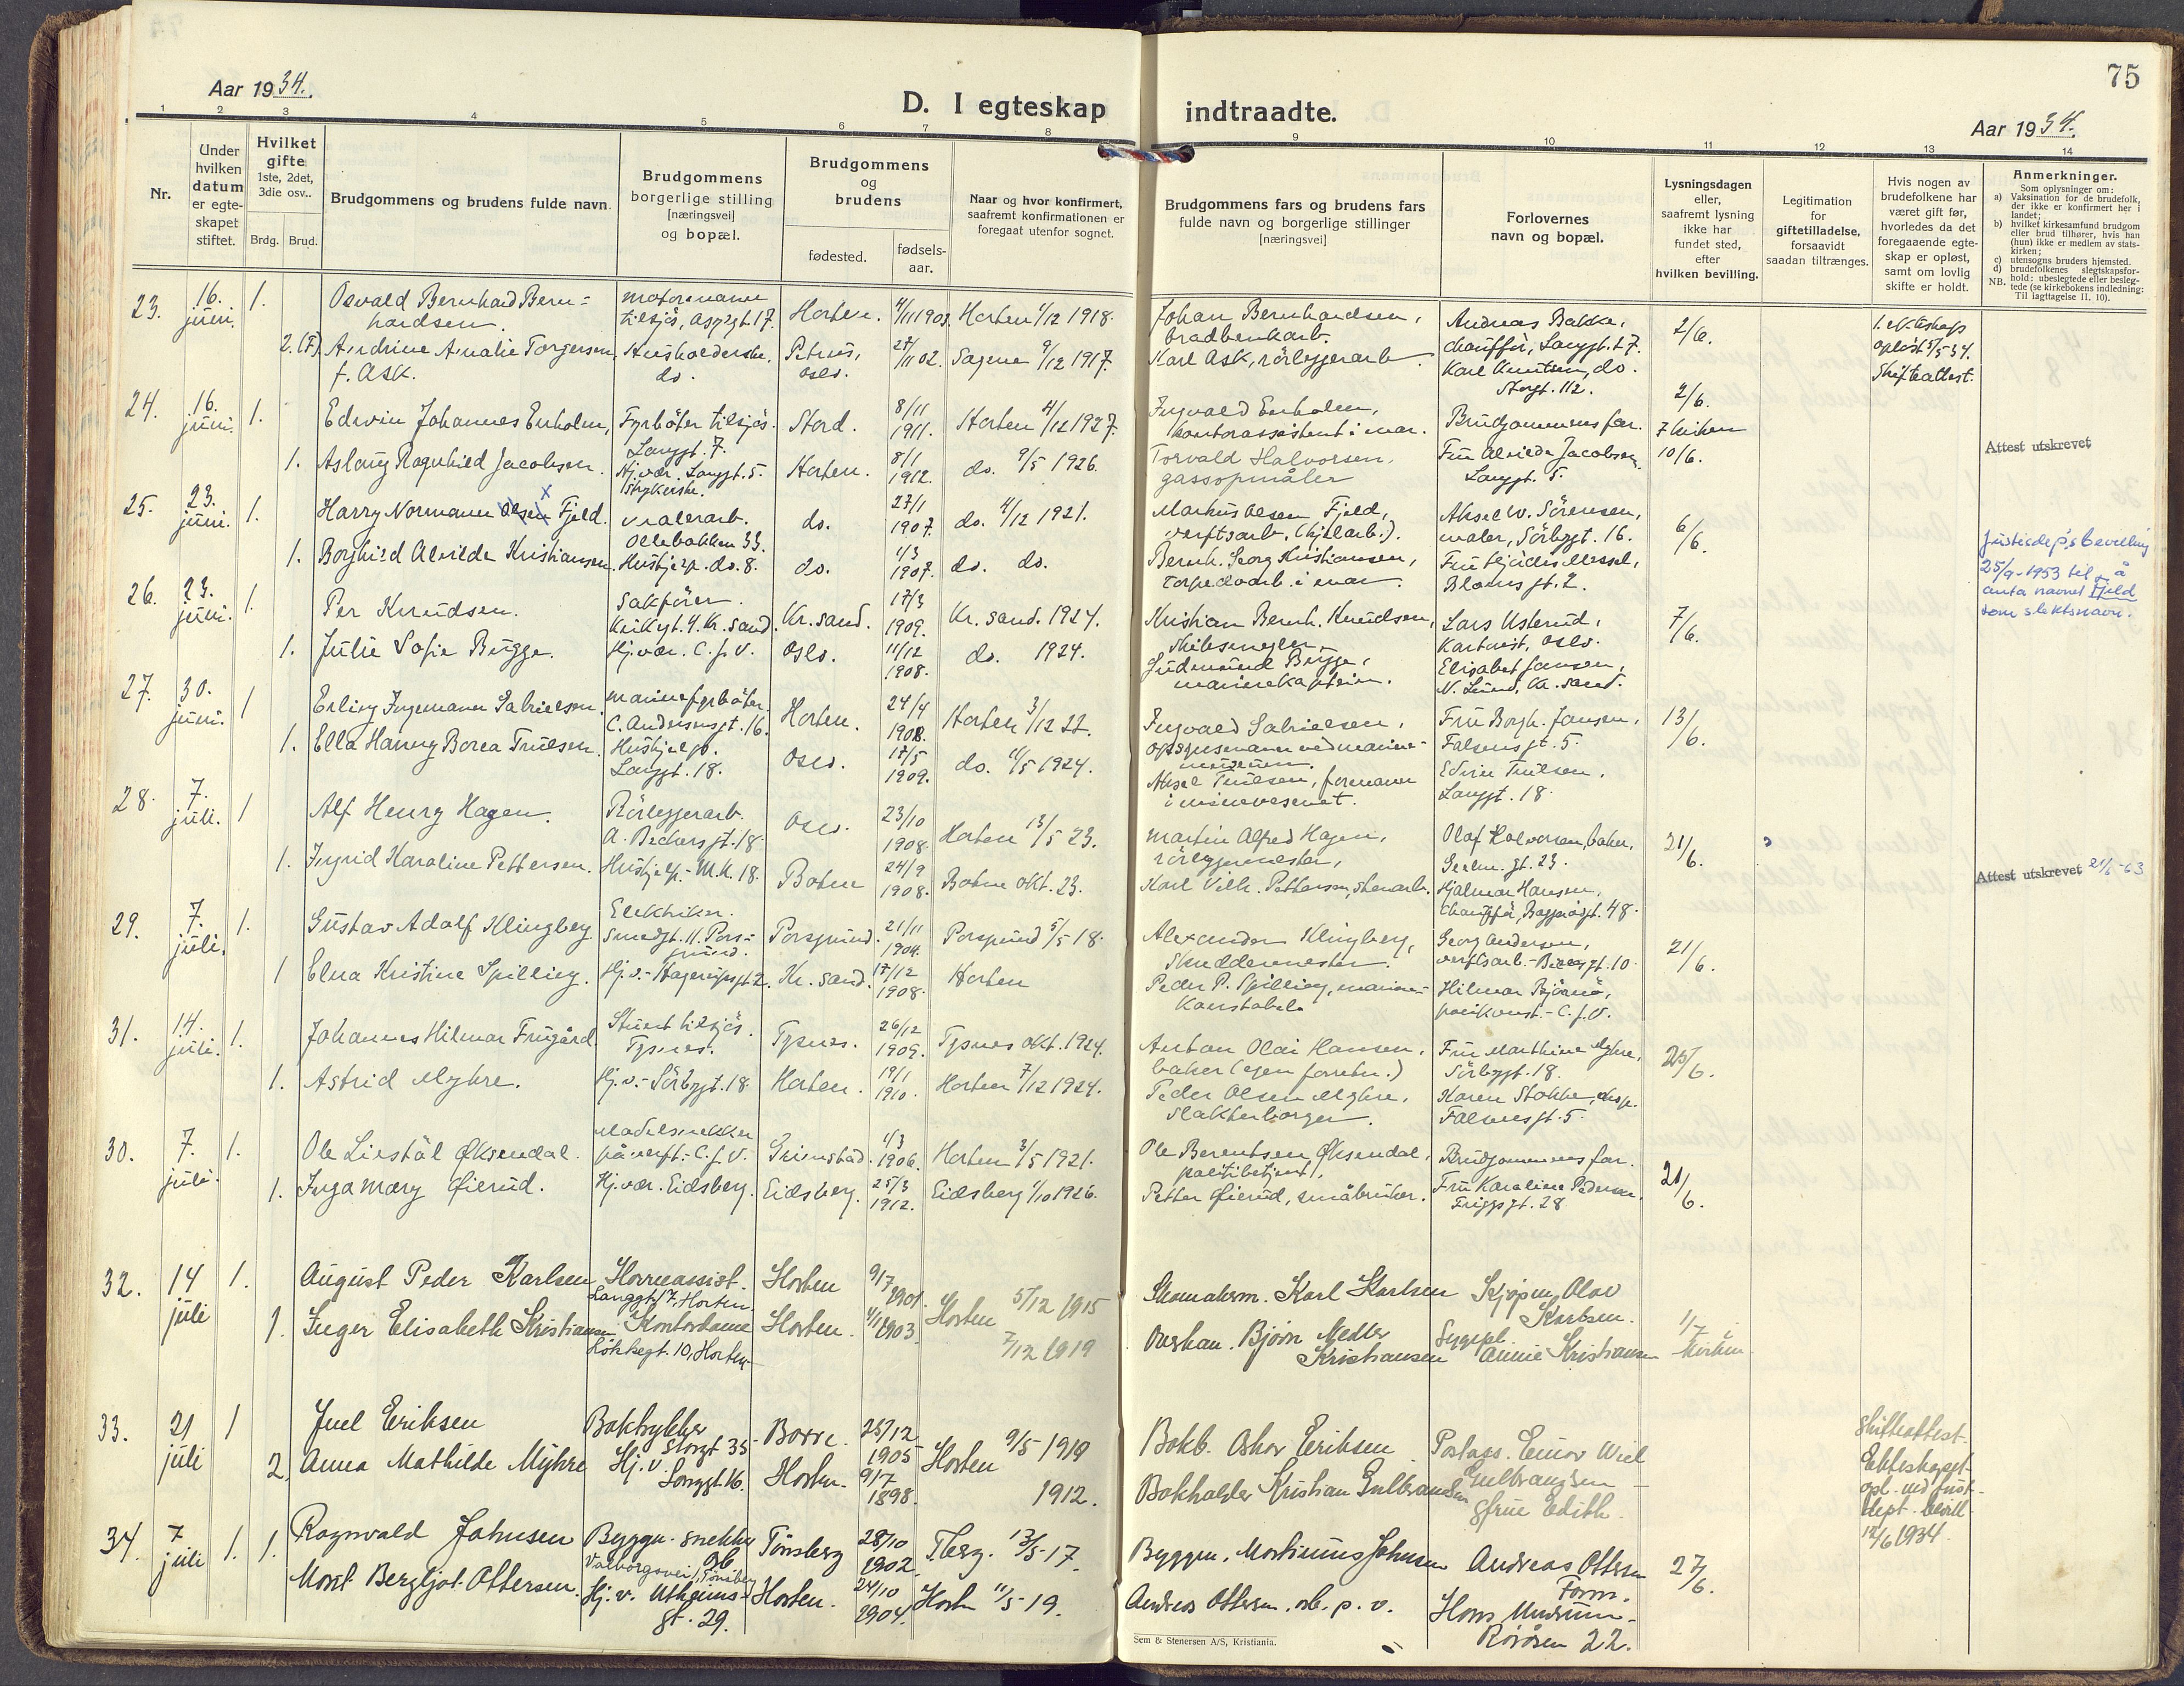 75
Aar 1934.
D. I egteskap indtraadte.
Aar 1934.
1 2 3 4 5 6 7 8 9 10 11 12 13 14
Nr.
Under hvilken datum er egte-skapet stiftet.
Hvilket gifte 1ste, 2det, 3die osv..
Brdg. Brud.
Brudgommens og brudens fulde navn.
Brudgommens borgerlige stilling [næringsvei] og bopæl.
Brudgommens og brudens
fødested.
fødsels-aar.
Naar og hvor konfirmert, saafremt konfirmationen er foregaat utenfor sognet.
Brudgommens fars og brudens fars fulde navn og borgerlige stillinger [næringsvei]
Forlovernes navn og bopæl.
Lysningsdagen eller, saafremt lysning ikke har fundet sted, efter hvilken bevilling.
Legitimation for giftetilladelse, forsaavidt saadan tiltrænges.
Hvis nogen av brudefolkene har været gift før, hvorledes da det foregaaende egte-skap er opløst, samt om lovlig skifte er holdt.
Anmerkninger.
Som oplysninger om:
a) Vaksination for de brudefolk, der ikke er konfirmert her i landet;
b) hvilket kirkesamfund brudgom eller brud tilhører, hvis han (hun) ikke er medlem av stats-kirken;
c) utensogns bruders hjemsted.
d) brudefolkenes slegtskapsfor-hold: ubeslegtede eller besleg-tede (se kirkebokens indledning:
NB. Til iagttagelse II, 10).
23. 16. juni. 1. Osvald Bernhard Bern=
hardsen. motormann tilsjøs, Aspgt. 17. Horten. 4/11 1903. Horten 1/12 1918. Johan Bernhardsen, Andreas Bakke, chauffør, Langgt. 27. 2/6. 1. ekteskap opløst 5/5-34. Skifteattest.
2. (F) Andrine Amalie Torgersen f. Ask. Husholderske, do. Petrus, Oslo. 27/11 02. Sagene 9/12 1917. Karl Ask, rørleggerarb. Karl Knutsen, do. Storgt. 112.
24. 16. juni. 1. Edwin Johannes Enholm, Fyrbøter tilsjøs. Langgt. 7. Stord. 8/11 1911. Horten 4/12 1927. Ingvald Enholm, kontorassistent i mar. Brudgommens far. 2/6.
1. Aslaug Ragnhild Jacobsen. Hj.vær. Langgt. 5. Strykerske. Horten. 8/1 1912. do. 9/5 1926. Torvald Halvorsen, gassopmåler Fru Alvilda Jacobsen, Langgt. 5. 10/6.
Attest utskrevet
25. 23. juni. 1. Harry Normann Olsen Fjeld. malerarb. Ollebakken 33. do. 27/1 1907. do. 4/12 1921. Markus Olsen Fjeld, verftsarb. (kjelarb.). Aksel W. Sörensen, maler, Sörbygt. 16. 6/6.
1. Borghild Alvilde Kristiansen. Hushjelp. do. 8. do. 1/3 1907. do. do. Bernh. Georg Kristiansen, Torpedoarb. i mar. Blomsgt. 2.
Justisdep's bevilling
25/9-1953 til å
anta navnet Fjeld
som slektsnavn.
26. 23. juni. 1. Per Knudsen. Sakfører. Kirkegt. 4. Kr.sand. Kr.sand. 17/3 1909. Kr.sand. 1924. Kristian Bernh. Knudsen, Skibsmegler. Lars Usterud, Oslo. 7/6.
1. Julie Sofie Bugge. Hj.vær. C.J.V. Oslo. 11/12 1908. do. 1924. Gudmund Bugge, marinekaptein. Elisabet Jansen, N. Lund, Kr.sand.
27. 30. juni. 1 Erling Ingemann Gabrielsen. marinefyrbøter. C. Andersensgt. 16. Horten. 24/4 1908. Horten 3/12 22. Ingvald Gabrielsen, opsynsmann ved marine-museum. Fru Borgh. Jansen, Falsensgt. 5. 13/6.
1. Ella Hanny Borea Trulsen. Hushjelp. Langgt. 18. Oslo. 17/5 1909. do. 11/5 1924. Aksel Trulsen, formann i minevesenet. Edvin Trulsen, Langgt. 18.
28. 7. juli. 1 Alf Henry Hagen. Rörleggerarb. A. Beckersgt. 18. Oslo. 23/10 1908. Horten 13/5 23. Martin Alfred Hagen, rörleggermester, Olaf Halvorsen, baker, 21/6.
1. Ingrid Karoline Pettersen. Hushjelp.- M.K. 18. Botne 24/9 1908. Botne okt. 23. Karl Vilh. Pettersen, stenarb. Hjalmar Hansen, chauffør, 48.
Attest utskrevet 21/6-63
29. 7. juli. 1. Gustav Adolf Klingberg Elektriker. Smedgt. 11. Pors=grund. Porsgrund. 21/11 1904. Porsgrund 5/5 18. Alexander Klingberg, Skreddermester. Georg Andersen, verftsarb. 21/6.
1 Elna Kristine Spilling. Hj.v.- Hagerupsgt. 2. Kr.sand. 17/12 1908. Horten Peder P. Spilling, marine-konstabel. Hilmar Bjørnø,
31. 14. juli. 1. Johannes Hilmar Frugård. Stuert tilsjøs. Tysnes. Tysnes. 26/12 1909. Tysnes okt. 1924. Anton Olai Hansen, baker (egen forretn.) Fru Marthine Myhre, Sörbygt. 18. 25/6.
1. Astrid Myhre. Hj.v.- Sörbygt. 18. Horten. 19/1 1910. Horten 7/12 1924. Peder Olsen Myhre, Slakterborger. Karen Stokke, Falsensgt. 5.
30. 7. juli. 1. Ole Liestöl Øksendal. Modelsnekker på verft.- C.J.V. Grimstad. 1/3 1906. Horten 3/5 1921. Ole Berentsen Øksendal, politibetjent, Brudgommens far. 21/6.
1. Inga Mary Gierud. Hj.vær. Eidsberg. Eidsberg. 25/3 1912. Eidsberg 1/10 1926. Petter Gierud, småbruker. Fru Karoline Pedersen, Friggsgt. 28
32. 14 juli 1. August Peder Karlsen Langgt 17, Horten. Horten 9/7 1901. Horten 5/12 1915 Skomakerm. Karl Karlsen Kjøpm. Olav Karlsen. 1/7
1. Inger Elisabeth Kristiansen Kontordame Løkkegt. 10, Horten Horten. 1903. 7/12 1919 Bjørn Medler Kristiansen Sygepl. Annie Kristiansen
33. 21 juli 1 Juel Eriksen Boktrykker Storgt 35 Borre. 25/12 1905 Horten 9/5 1919 Bokb. Oskar Eriksen Einar Wiel Gulbrandsen Skifteattest.
2. Anna Mathilde Myhre Hj.v. Langgt. 16. Horten. 9/7 1898. 1912. Bokholder Kristian Gulbrandsen frue Edith. Ekteskapet opl. ved just. dept. bevill 12/6 1934.
34. 7 juli 1. 1. Ragnvald Johnsen Byggm. snekker Valborgsvei 1, Tönsberg Tönsberg 28/10 1902. T.berg. 13/5-17. Byggm. Martinius Johnsen Andreas Ottersen Form. 27/6.
Marit Bergljot Ottersen. Hj.v. gt. 29. Horten. 24/10 1904. Horten 11/5-19. Andreas Ottersen. arb. p. v. Røråsen 22.
Sem & Stenersen A/S, Kristiania.